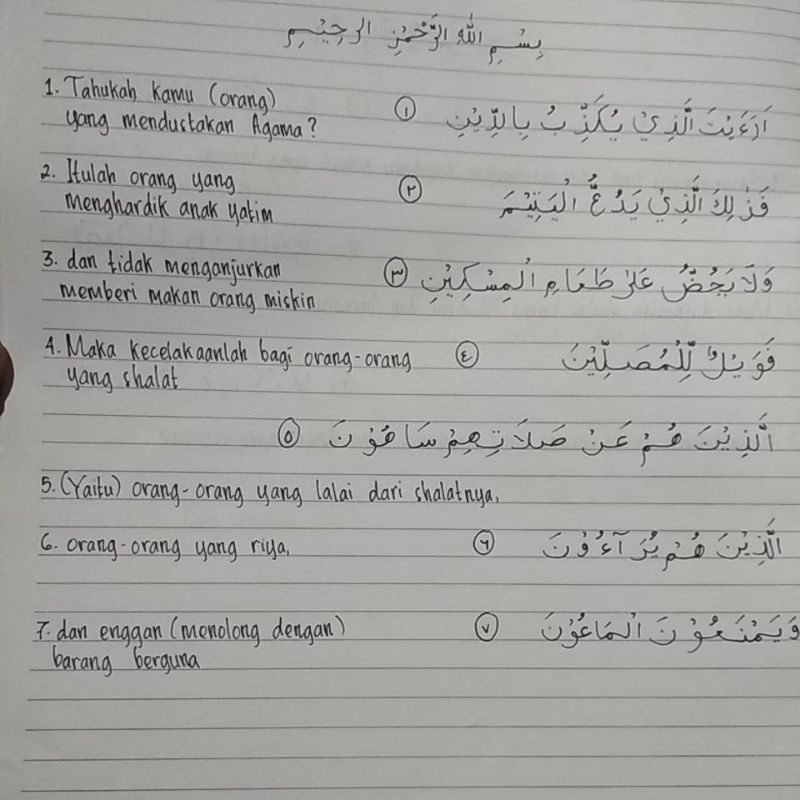 بِسْمِ اللّٰهِ الرَّحْمٰنِ الرحِيْمِ
1. Tahukah kamu (orang)
yang mendustakan Agama?
اَرَءَيْتَ الَّذِيْ يُكَذِّبُ بِالدِّيْنِ ①
2. Itulah orang yang
menghardik anak yatim
فَذٰلِكَ الَّذِيْ يَدُعُّ الْيَتِيْمَ ②
3. dan tidak menganjurkan
memberi makan orang miskin
وَلَا يَحُضُّ عَلٰى طَعَامِ الْمِسْكِيْنِ ③
4. Maka kecelakaanlah bagi orang-orang
yang shalat
فَوَيْلٌ لِّلْمُصَلِّيْنَ ④
الَّذِيْنَ هُمْ عَنْ صَلَاتِهِمْ سَاهُوْنَ ⑤
5. (Yaitu) orang-orang yang lalai dari shalatnya,
6. orang-orang yang riya,
الَّذِيْنَ هُمْ يُرَآءُوْنَ ⑥
7. dan enggan (menolong dengan)
barang berguna
وَيَمْنَعُوْنَ الْمَاعُوْنَ ⑦